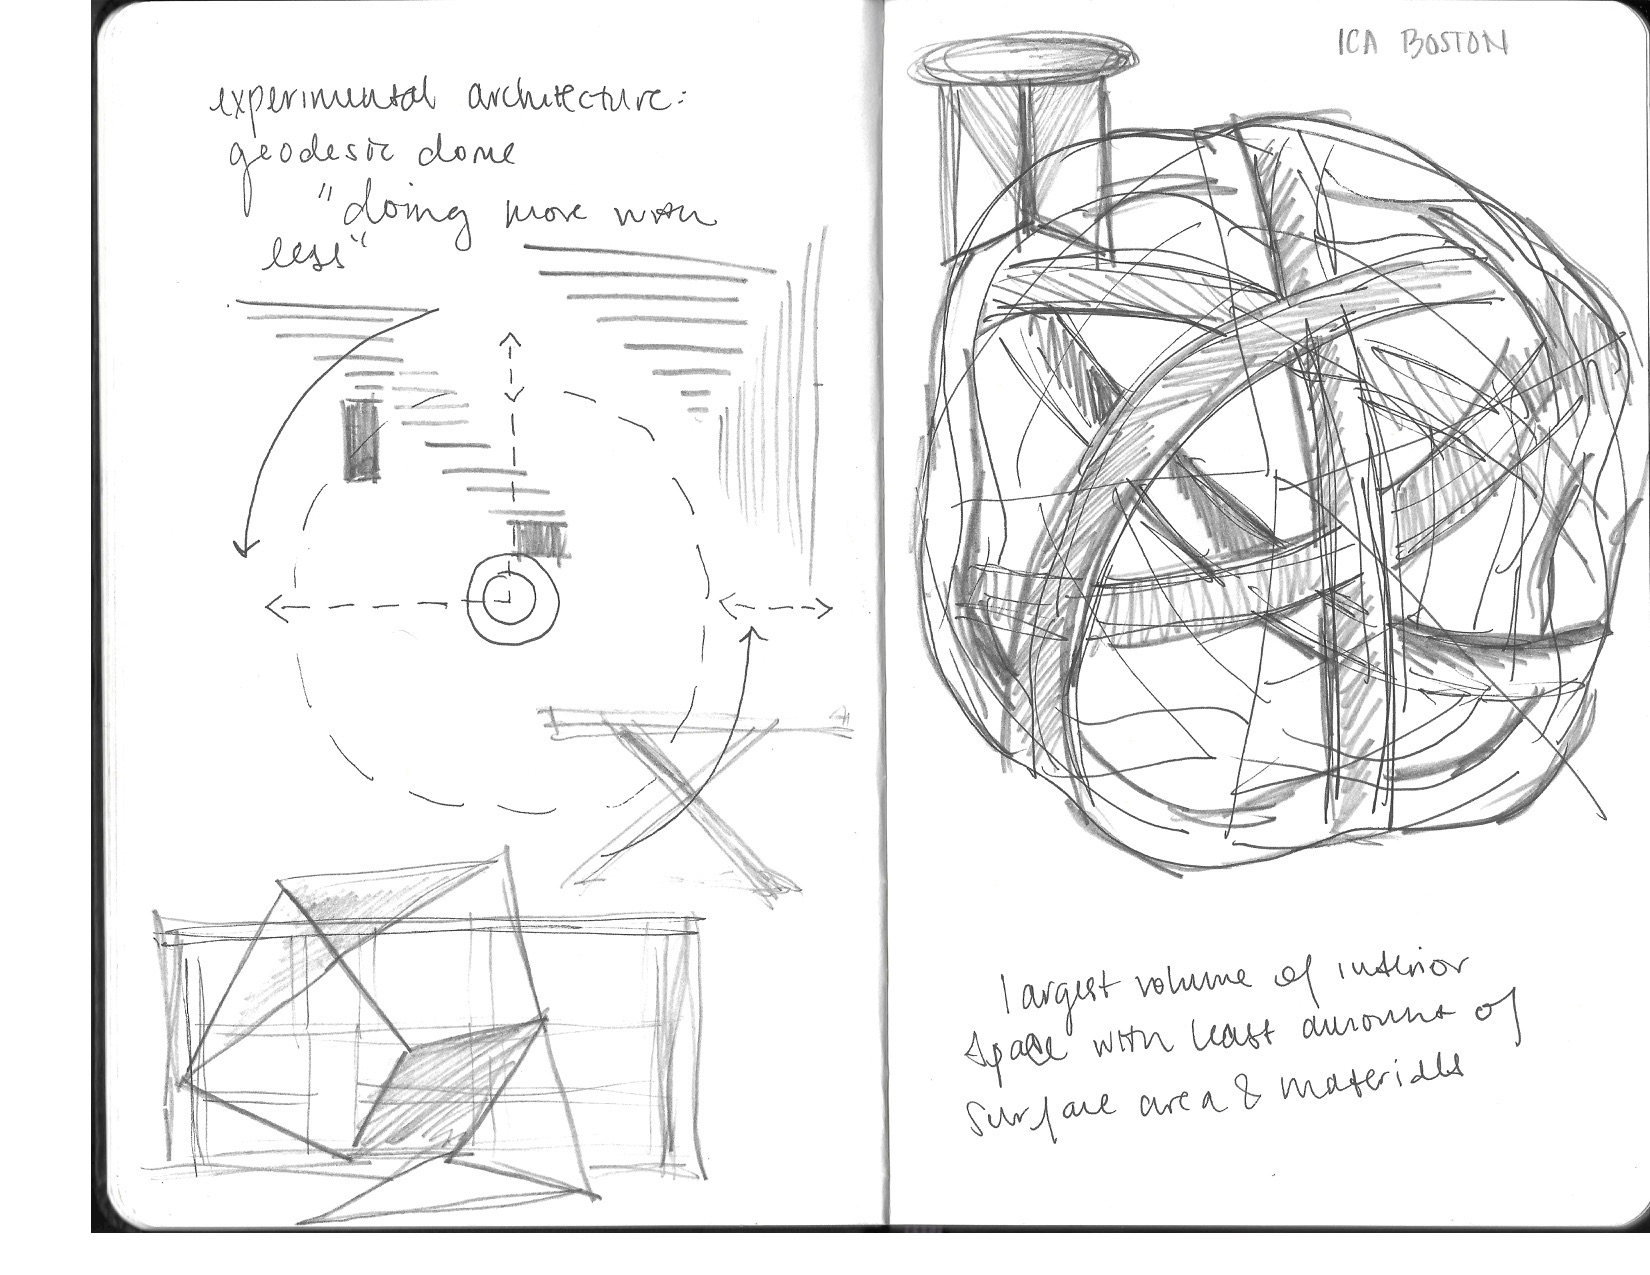 experimental architecture:
geodesic dome
"doing more with
less"
ICA BOSTON
largest volume of interior
space with least amount of
surface area & materials